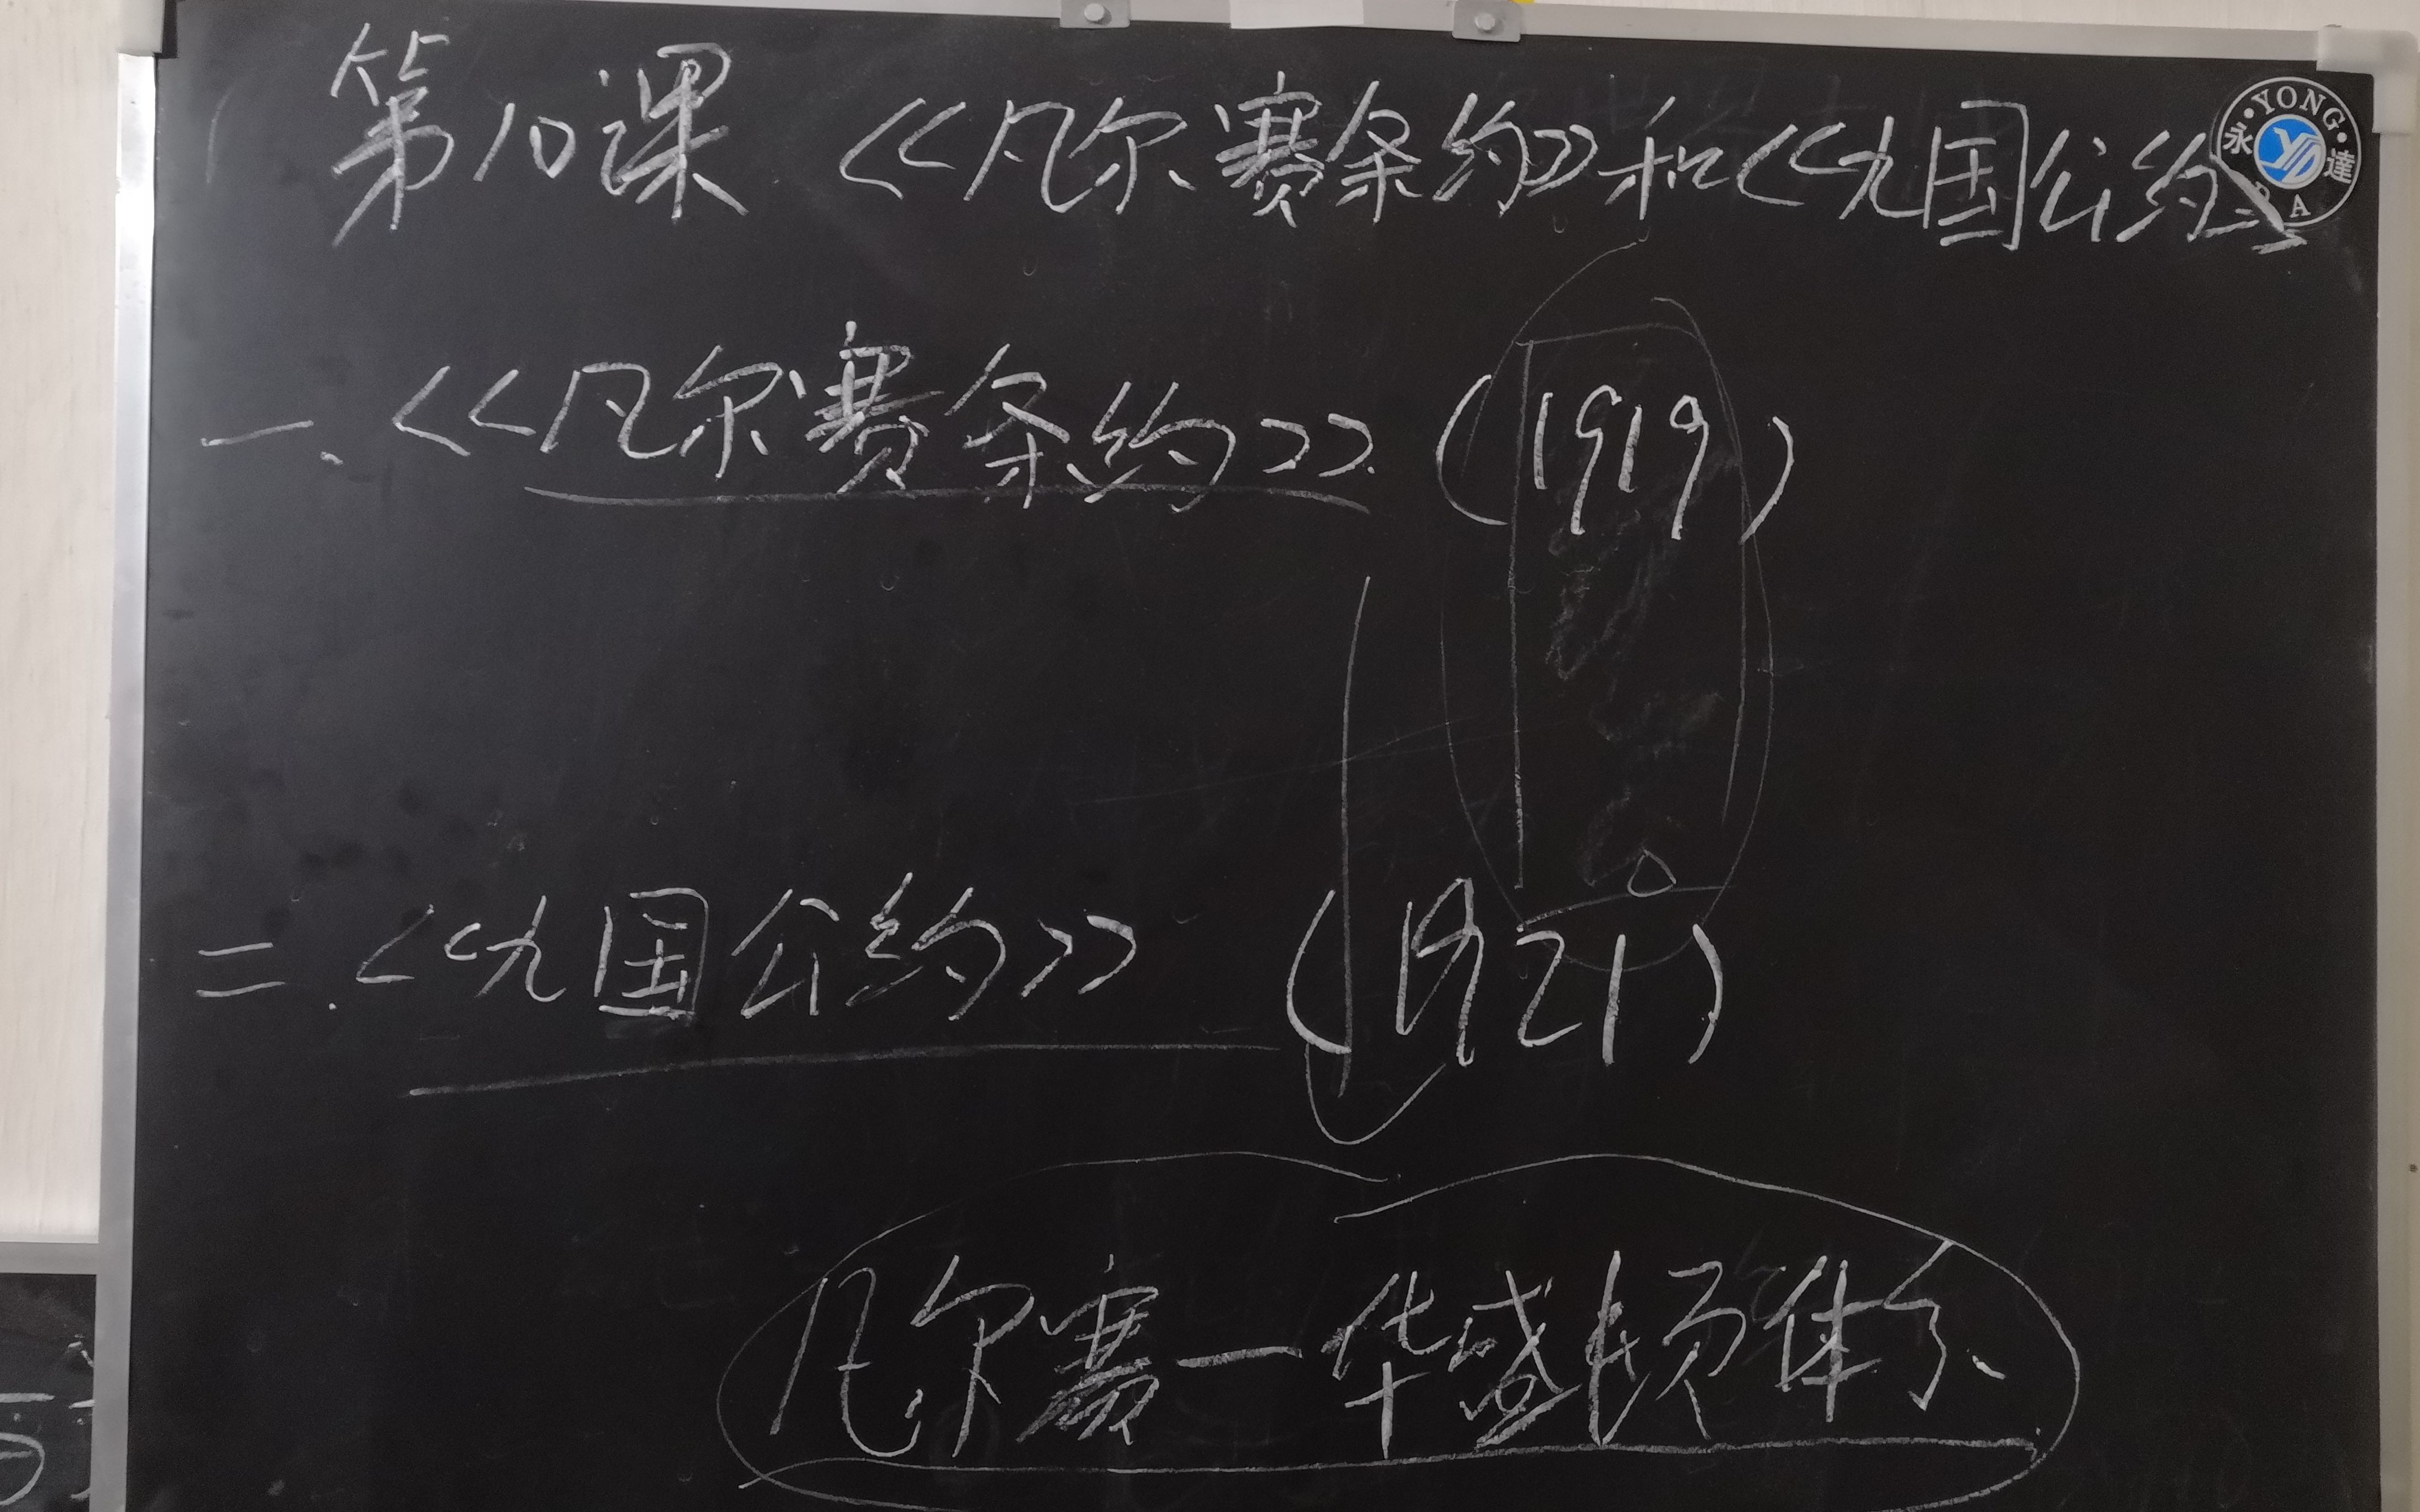 第10课 《凡尔赛条约》和《九国公约》
YONG
永 達
D A
一、《凡尔赛条约》 (1919)
二、《九国公约》 (1921)
凡尔赛一华盛顿体系